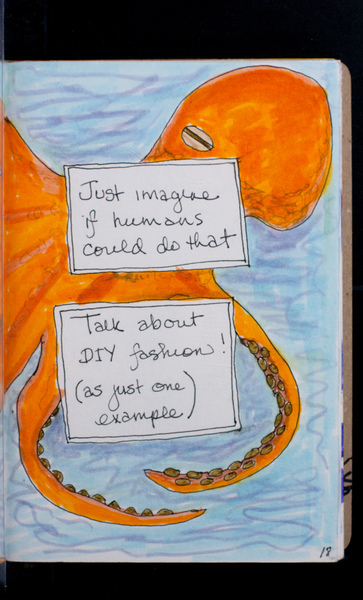 Just imagine
if humans
could do that
Talk about
DIY fashion!
(as just one
example)
18